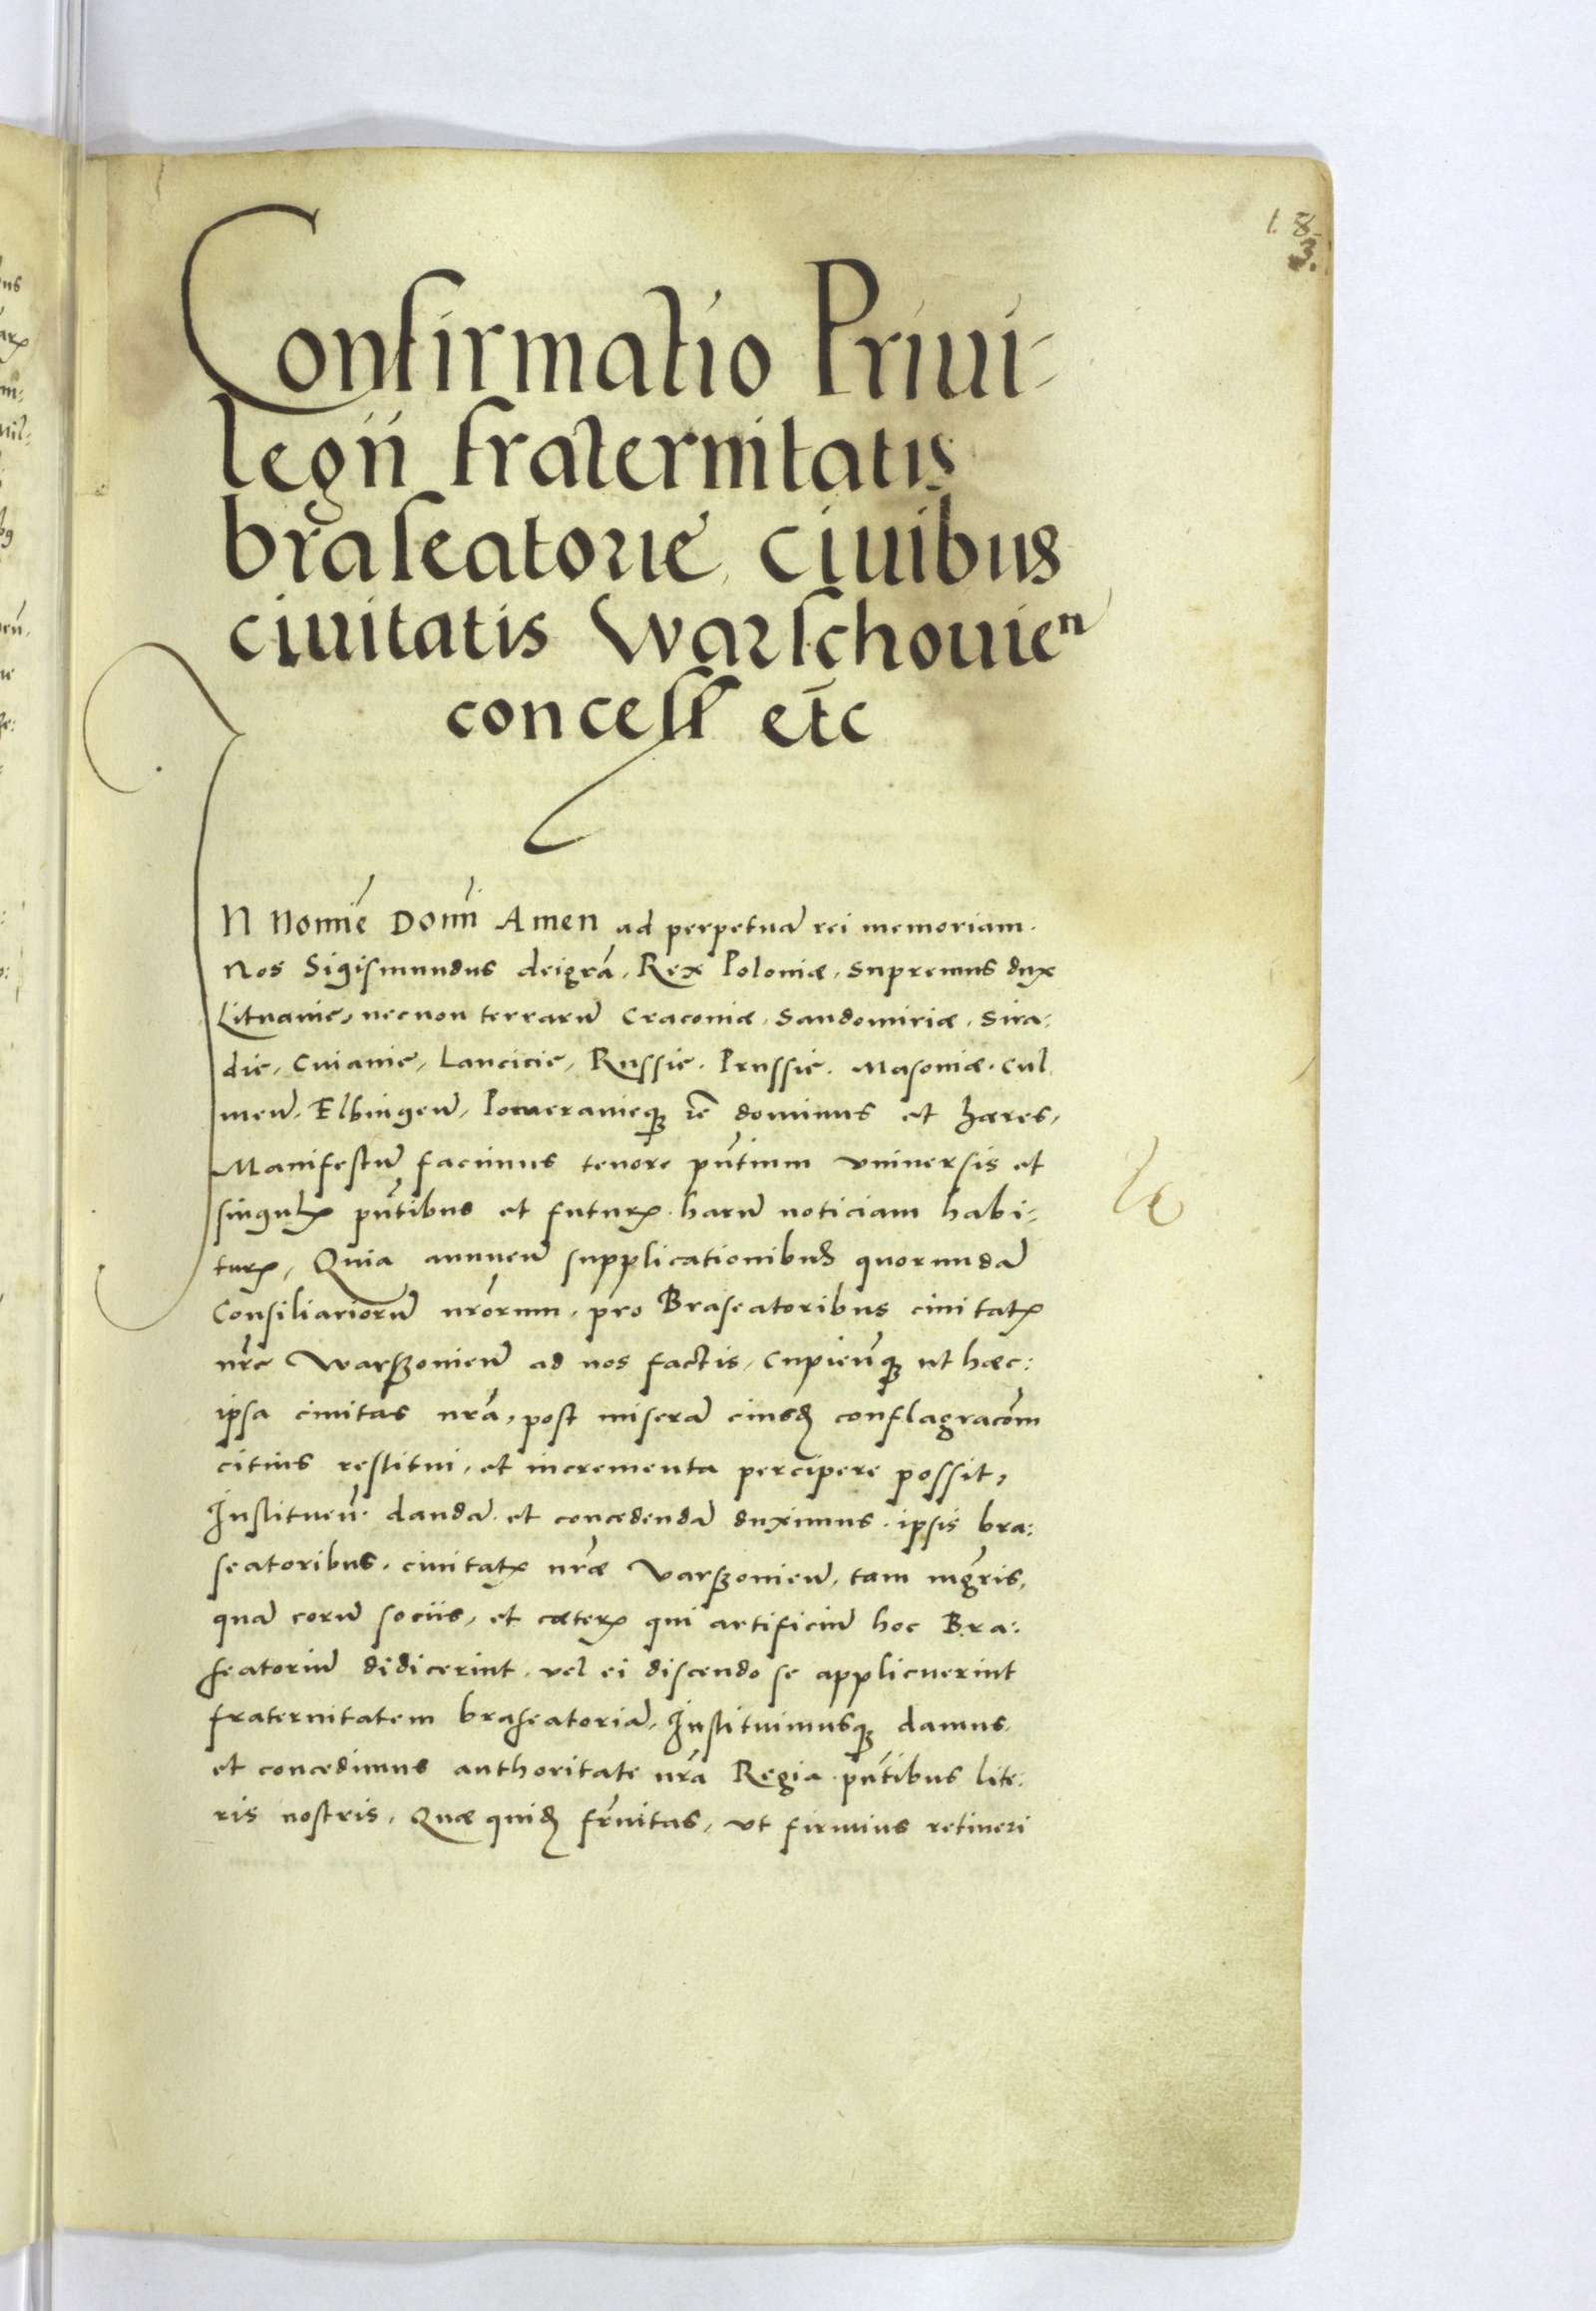 1. 8
3.
Confirmatio Priui-
legii fraternitatis
braseatorie, ciuibus
ciuitatis Warschouien
concess etc
IN Nomīe Domī Amen ad perpetuā rei memoriam.
Nos Sigismundus deigrā, Rex Poloniæ, supremus dux
Lituanie, necnon terrarū Cracouiæ, Sandomiriæ, Sira:
die, Cuiauie, Lancicie, Russie, Prussie, Masouiæ, Cul
meñ, Elbingeñ, Pomeranieqꝫ ꝛc̄ dominus et hæres,
Manifestū facimus tenore pn̄tium vniuersis et
singulꝭ pn̄tibus et futurꝭ harū noticiam habi-
turꝭ, Quia annueñ supplicationibus quorundā
Consiliariorū nrōrum, pro Braseatoribus ciuitatꝭ
nrē Warssouieñ ad nos factis, Cupienꝙꝫ ut hæc:
ipsa ciuitas nrā, post miserā eiusdꝫ conflagracōm
citius restitui, et incrementa percipere possit,
Instituen̄ dandā et concedendā duximus ipsis bra:
seatoribus, ciuitatꝭ nrǣ Varssouieñ, tam mgr̄is,
quā eorū sociis, et cæterꝭ qui artificiū hoc Bra:
seatoriū didicerint, vel ei discendo se applicuerint
fraternitatem braseatoriā, Instituimusqꝫ damus
et concedimus authoritate nrā Regia pn̄tibus lite:
ris nostris, Quæ quidꝫ frn̄itas, vt firmius retineri